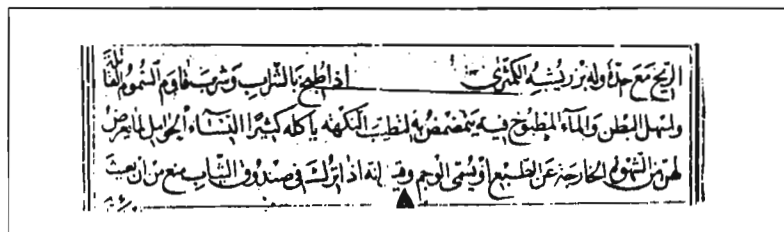 الريح مع حدة وله بزر يشبه الكمثرى اذا طبخ بالشراب وشرب قاوم السموم القاتلة
واسهل البطن والماء المطبوخ فيه يتمضمض به لتطيب النكهة يأكله كثيرا النساء الحوامل لما يعرض
لهن من الشهوة الخارجة عن الطبيع او يسمى الوحم وقيل انه اذا ترك في صندوق الثياب منع من ان يعث